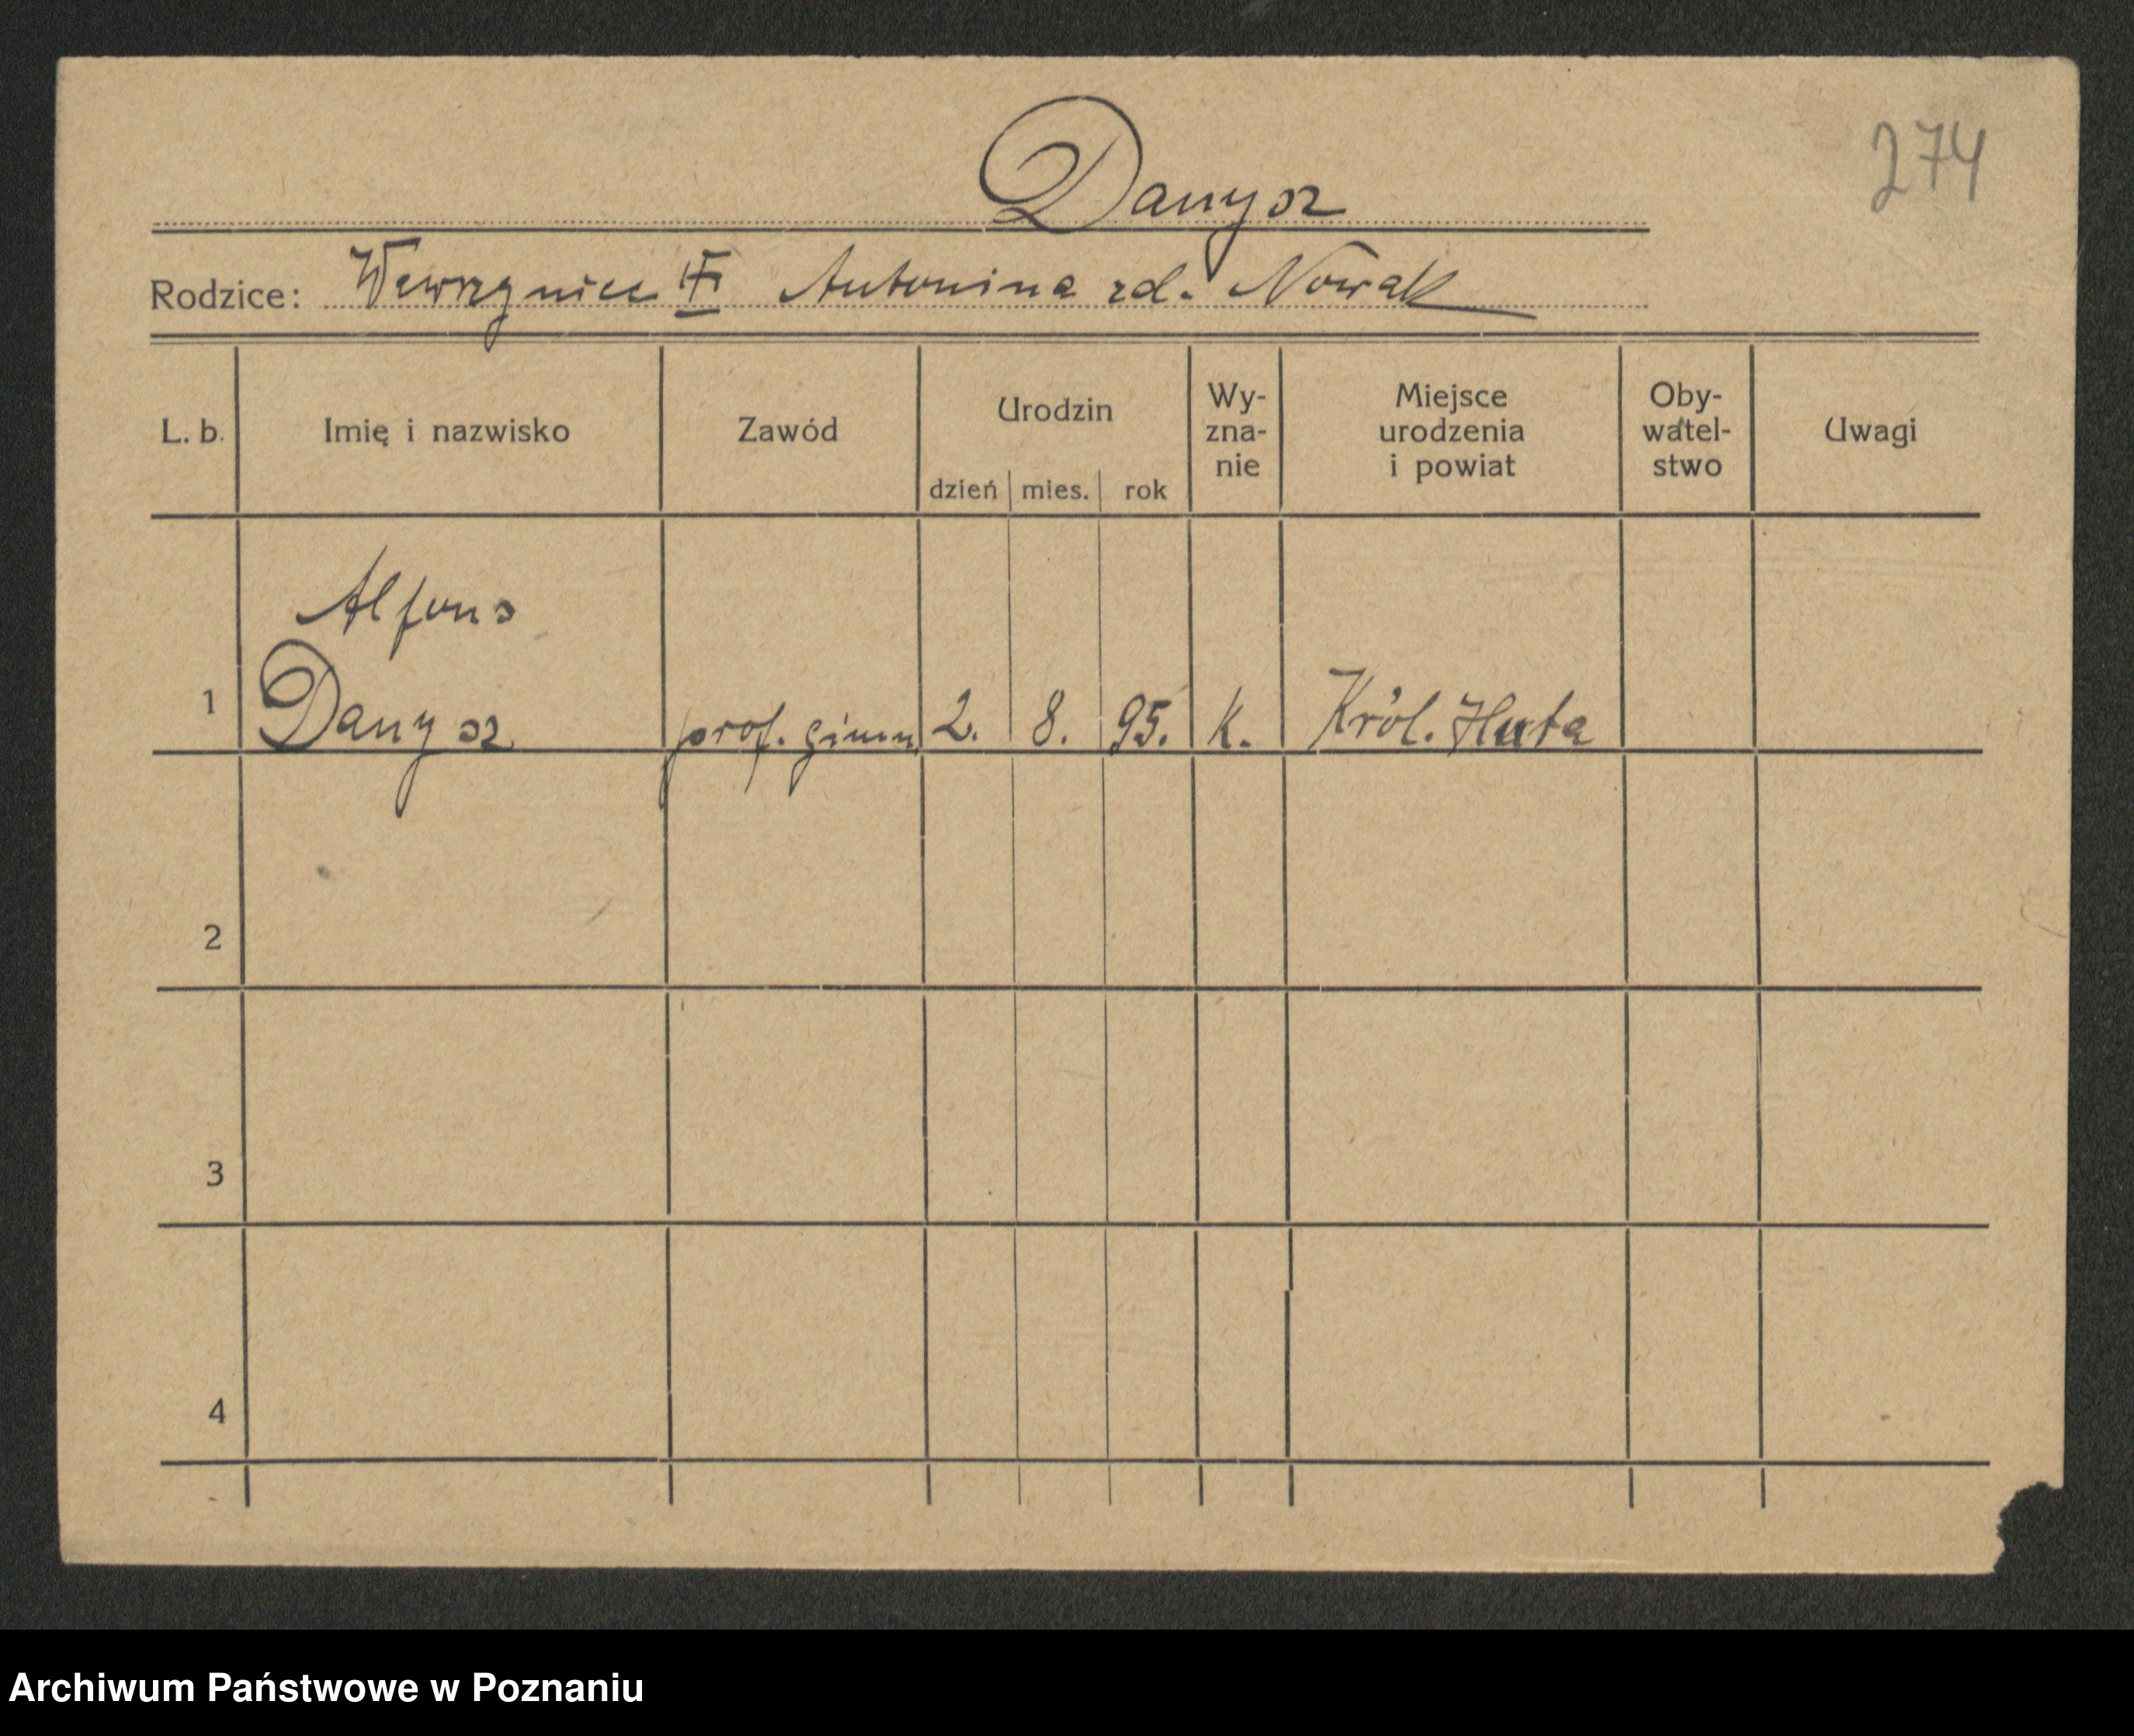 274
Danysz
Rodzice: Wawrzyniec Antonina zd. Nowak
L. b. Imię i nazwisko Zawód Urodzin dzień mies. rok Wy-zna-nie Miejsce urodzenia i powiat Oby-watel-stwo Uwagi
Alfons
1 Danysz prof. gimn 2. 8. 95. k. Król. Huta
2
3
4
Archiwum Państwowe w Poznaniu